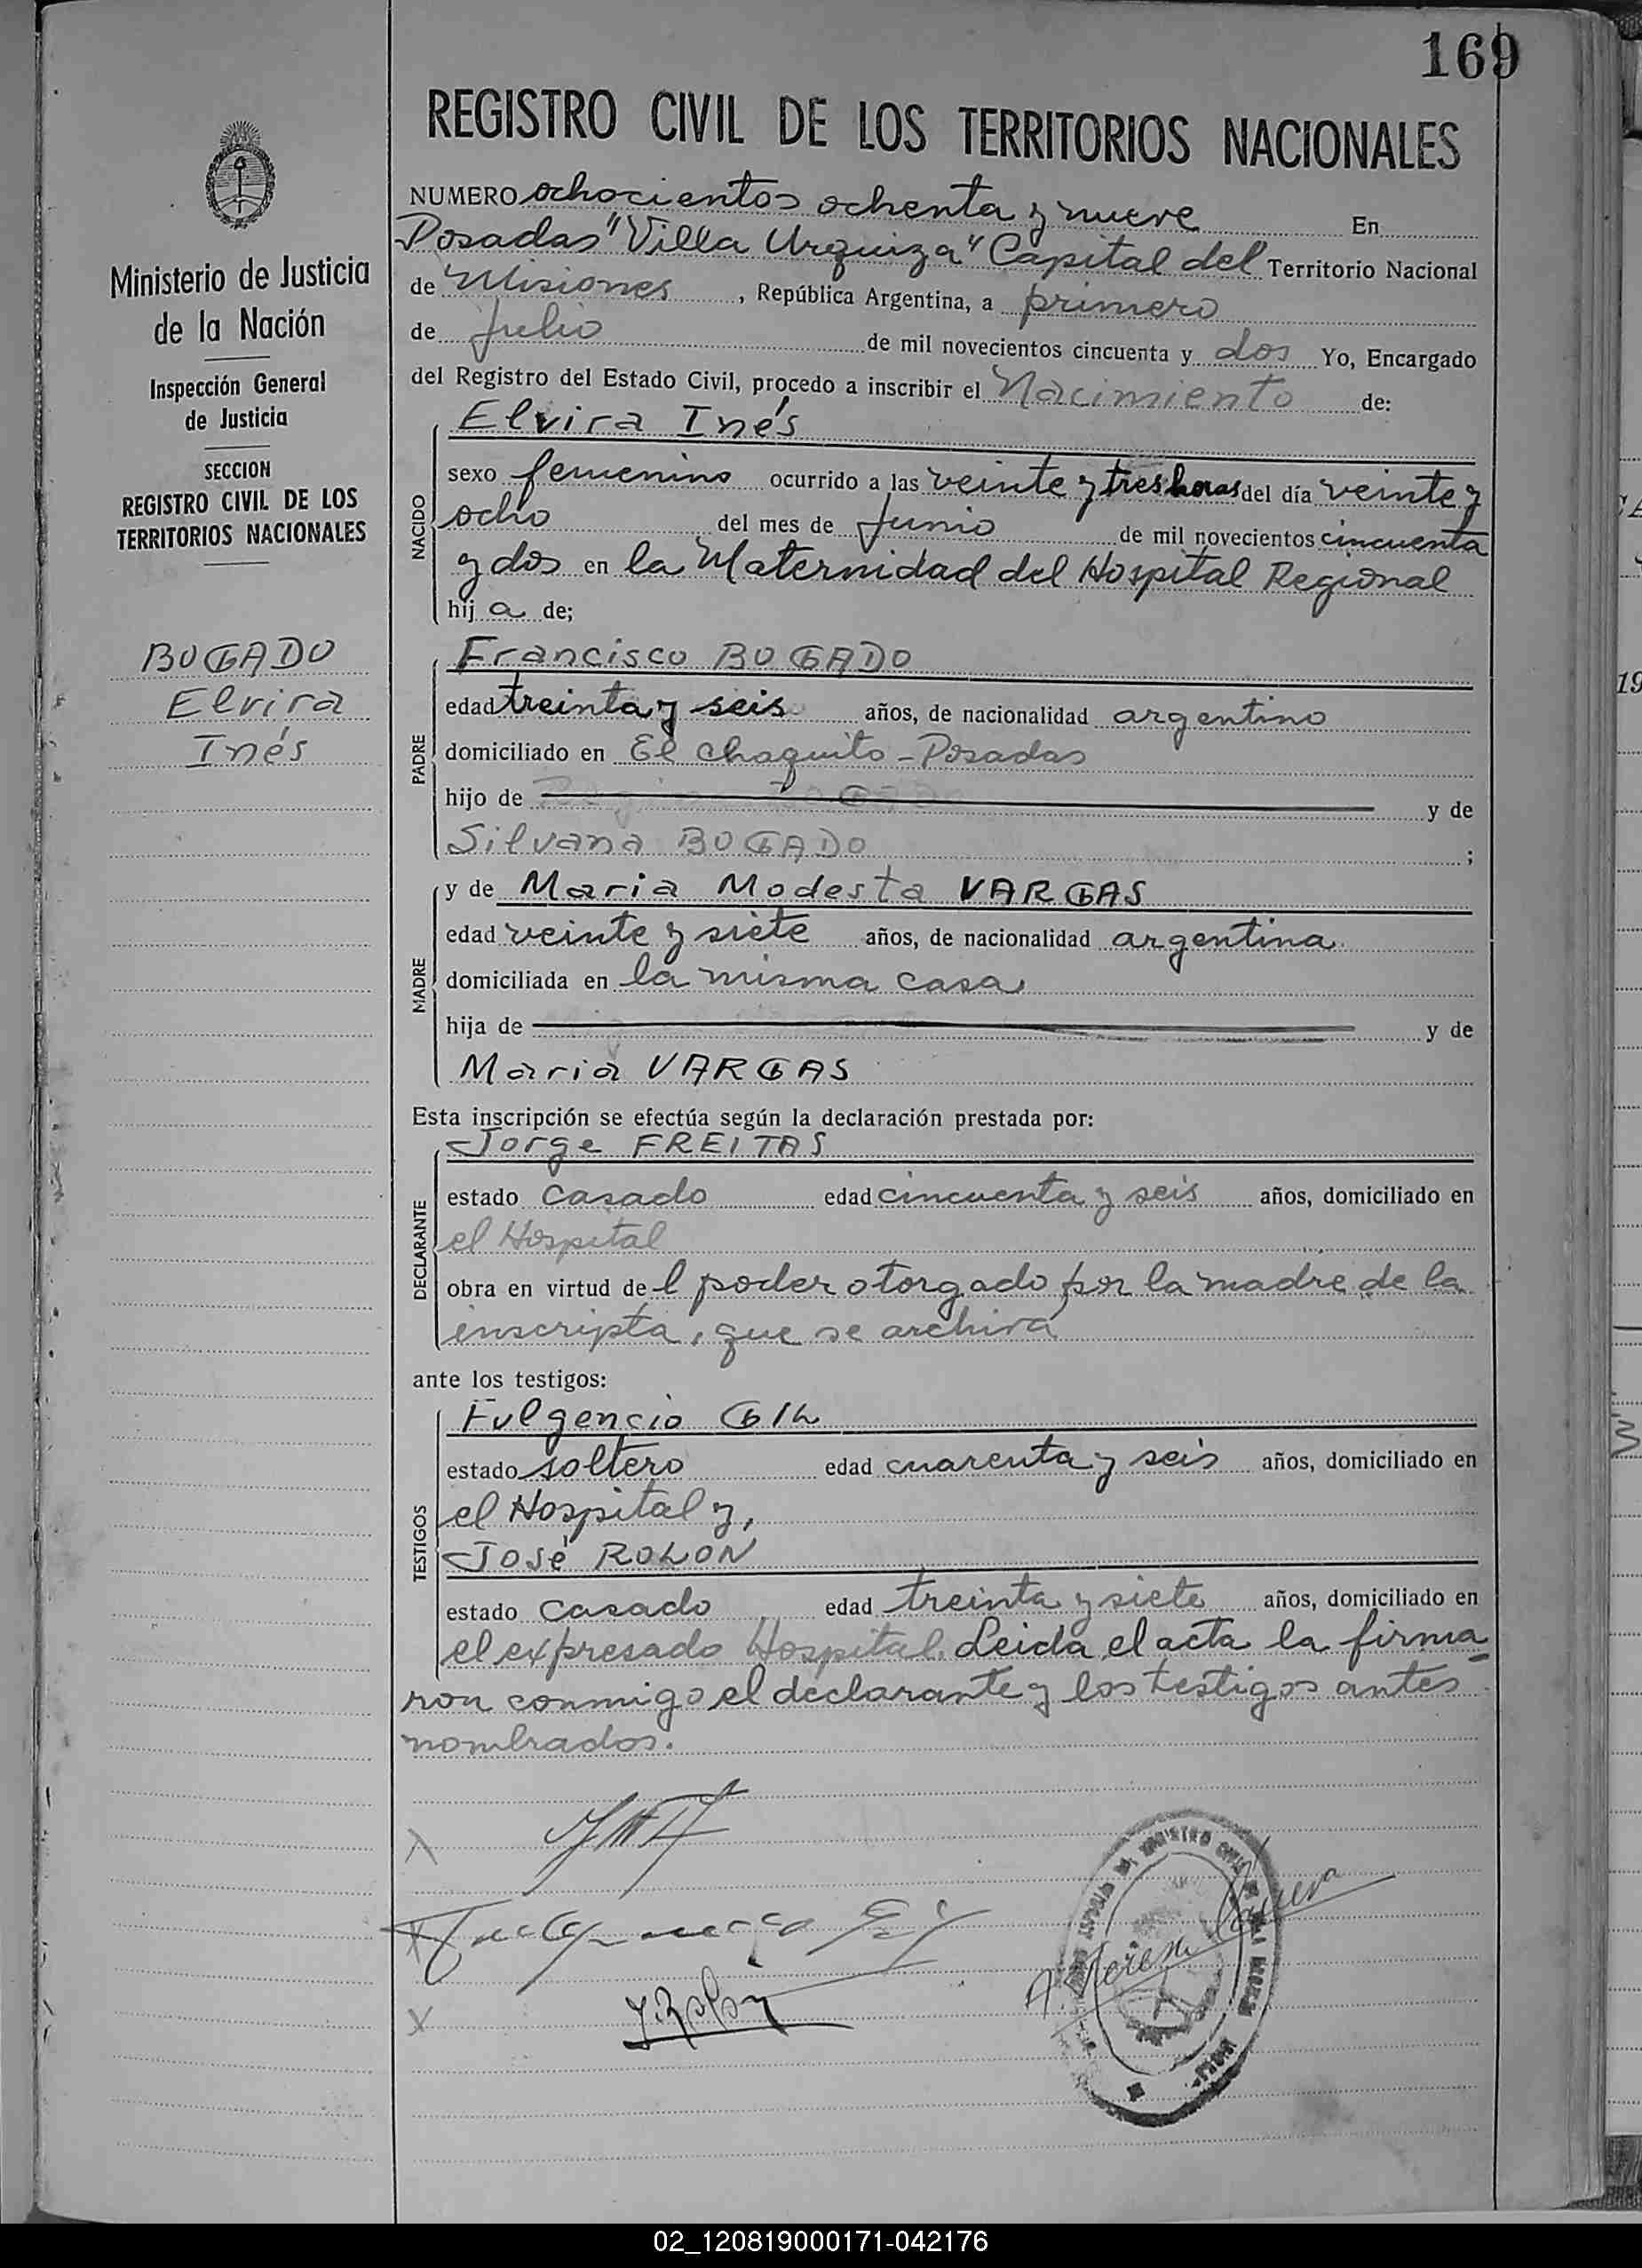 169
REGISTRO CIVIL DE LOS TERRITORIOS NACIONALES
Ministerio de Justicia
de la Nación
Inspección General
de Justicia
SECCION
REGISTRO CIVIL DE LOS
TERRITORIOS NACIONALES
BOGADO
Elvira
Inés
NUMERO ochocientos ochenta y nueve En
Posadas "Villa Urquiza" Capital del Territorio Nacional
de Misiones, República Argentina, a primero
de Julio de mil novecientos cincuenta y dos Yo, Encargado
del Registro del Estado Civil, procedo a inscribir el Nacimiento de:
NACIDO
Elvira Inés
sexo femenino ocurrido a las veinte y tres horas del día veinte y
ocho del mes de Junio de mil novecientos cincuenta
y dos en la Maternidad del Hospital Regional
hija de;
PADRE
Francisco BOGADO
edad treinta y seis años, de nacionalidad argentino
domiciliado en El Chaquito - Posadas
hijo de y de
Silvana BOGADO ;
MADRE
y de Maria Modesta VARGAS
edad veinte y siete años, de nacionalidad argentina
domiciliada en la misma casa
hija de y de
Maria VARGAS
Esta inscripción se efectúa según la declaración prestada por:
DECLARANTE
Jorge FREITAS
estado casado edad cincuenta y seis años, domiciliado en
el Hospital
obra en virtud del poder otorgado por la madre de la
inscripta, que se archiva
ante los testigos:
TESTIGOS
Fulgencio GIL
estado soltero edad cuarenta y seis años, domiciliado en
el Hospital y,
José ROLON
estado casado edad treinta y siete años, domiciliado en
el expresado Hospital. Leida el acta la firma-
ron conmigo el declarante y los testigos antes
nombrados.
X
X
J. Rolón
X
02_120819000171-042176